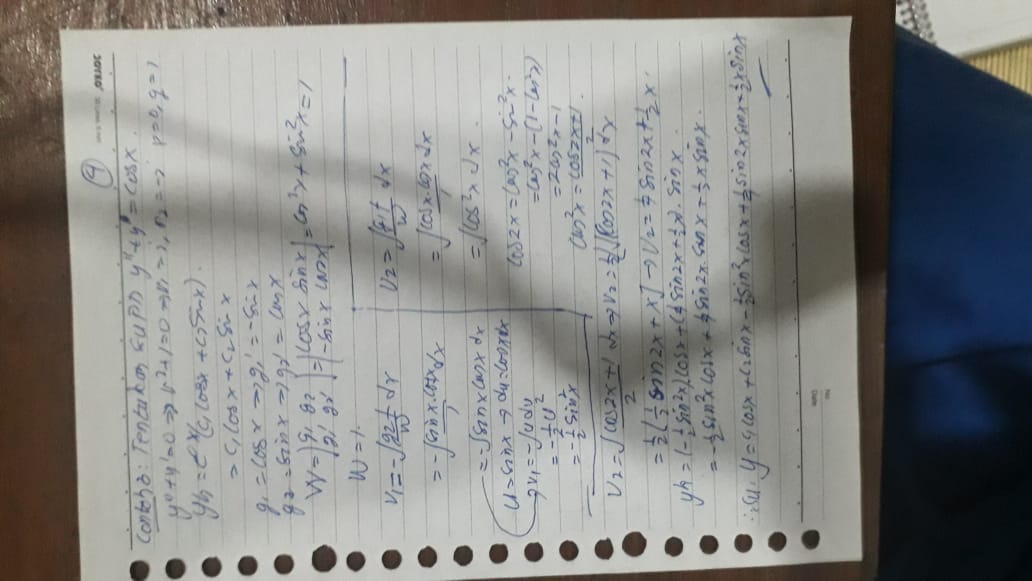 4
JOYKO
Contoh 3: Tentukan SUPD y'' + y = cos x.
y'' + y' = 0 => r² + 1 = 0 => r₁ = i, r₂ = -i p=0, q=1
yh = e^x (c₁ cos x + c₂ sin x).
= c₁ cos x + c₂ sin x
g₁ = cos x => g₁' = -sin x
g₂ = sin x => g₂' = cos x
W = |g₁ g₂; g₁' g₂'| = |cos x sin x; -sin x cos x| = cos²x + sin²x = 1
W = 1.
V₁ = -∫ g₂f/W dx
= -∫ sin x . cos x/1 dx
= -∫ sin x cos x dx
u = sin x → du = cos x dx
=> V₁ = -∫ u du
= -1/2 u²
= -1/2 sin²x
V₂ = ∫ g₁f/W dx
= ∫ cos x . cos x/1 dx
= ∫ cos²x dx.
cos 2x = cos²x - sin²x.
= cos²x - (1 - cos²x)
= 2cos²x - 1
cos²x = cos 2x + 1/2.
V₂ = ∫ cos 2x + 1/2 dx => V₂ = 1/2 ∫ (cos 2x + 1) dx
= 1/2 [1/2 sin 2x + x] → V₂ = 1/4 sin 2x + 1/2 x.
yk = (-1/2 sin²x) cos x + (1/4 sin 2x + 1/2 x). sin x
= -1/2 sin²x cos x + 1/4 sin 2x. sin x + 1/2 x sin x.
∴ SU: y = c₁ cos x + c₂ sin x - 1/2 sin²x cos x + 1/4 sin 2x sin x + 1/2 x sin x
Date
No